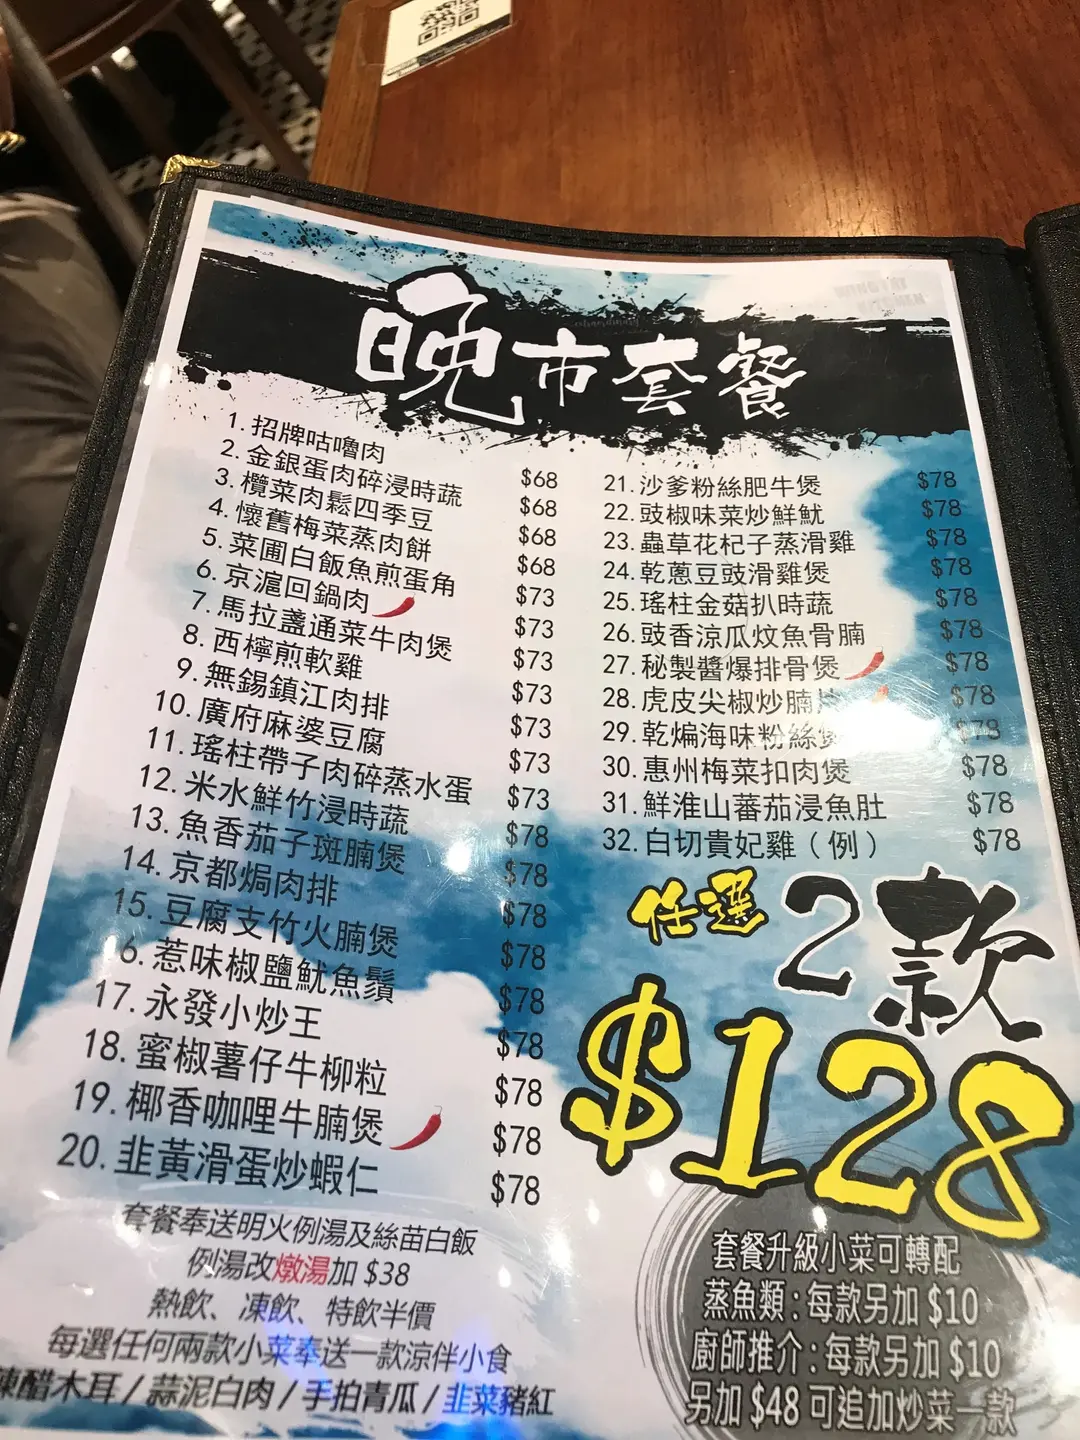 晚市套餐
1. 招牌咕嚕肉 $68
2. 金銀蛋肉碎浸時蔬 $68
3. 欖菜肉鬆四季豆 $68
4. 懷舊梅菜蒸肉餅 $68
5. 菜圃白飯魚煎蛋角 $73
6. 京滬回鍋肉 $73
7. 馬拉盞通菜牛肉煲 $73
8. 西檸煎軟雞 $73
9. 無錫鎮江肉排 $73
10. 廣府麻婆豆腐 $73
11. 瑤柱帶子肉碎蒸水蛋 $73
12. 米水鮮竹浸時蔬 $78
13. 魚香茄子斑腩煲 $78
14. 京都焗肉排 $78
15. 豆腐支竹火腩煲 $78
6. 惹味椒鹽魷魚鬚 $78
17. 永發小炒王 $78
18. 蜜椒薯仔牛柳粒 $78
19. 椰香咖哩牛腩煲 $78
20. 韭黃滑蛋炒蝦仁 $78
21. 沙爹粉絲肥牛煲 $78
22. 豉椒味菜炒鮮魷 $78
23. 蟲草花杞子蒸滑雞 $78
24. 乾蔥豆豉滑雞煲 $78
25. 瑤柱金菇扒時蔬 $78
26. 豉香涼瓜炆魚骨腩 $78
27. 秘製醬爆排骨煲 $78
28. 虎皮尖椒炒腩片 $78
29. 乾煸海味粉絲煲 $78
30. 惠州梅菜扣肉煲 $78
31. 鮮淮山蕃茄浸魚肚 $78
32. 白切貴妃雞（例） $78
任選2款
$128
套餐奉送明火例湯及絲苗白飯
例湯改燉湯加 $38
熱飲、凍飲、特飲半價
每選任何兩款小菜奉送一款涼伴小食
陳醋木耳 / 蒜泥白肉 / 手拍青瓜 / 韭菜豬紅
套餐升級小菜可轉配
蒸魚類 : 每款另加 $10
廚師推介 : 每款另加 $10
另加 $48 可追加炒菜一款